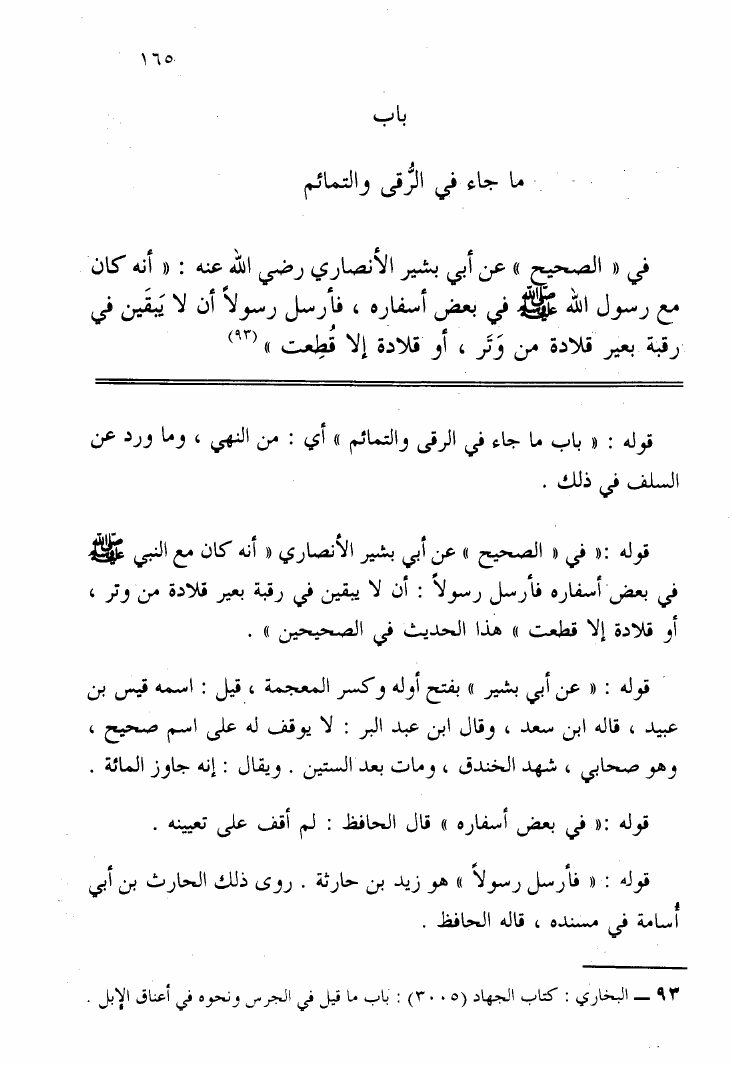 ١٦٥
باب
ما جاء في الرُّقى والتمائم
في « الصحيح » عن أبي بشير الأنصاري رضي الله عنه : « أنه كان
مع رسول الله ﷺ في بعض أسفاره ، فأرسل رسولاً أن لا يَبقَين في
رقبة بعير قلادة من وَتَر ، أو قلادة إلا قُطِعت » (٩٣)
قوله : « باب ما جاء في الرقى والتمائم » أي : من النهي ، وما ورد عن
السلف في ذلك .
قوله :« في « الصحيح » عن أبي بشير الأنصاري « أنه كان مع النبي ﷺ
في بعض أسفاره فأرسل رسولاً : أن لا يبقين في رقبة بعير قلادة من وتر ،
أو قلادة إلا قطعت » هذا الحديث في الصحيحين » .
قوله : « عن أبي بشير » بفتح أوله وكسر المعجمة ، قيل : اسمه قيس بن
عبيد ، قاله ابن سعد ، وقال ابن عبد البر : لا يوقف له على اسم صحيح ،
وهو صحابي ، شهد الخندق ، ومات بعد الستين . ويقال : إنه جاوز المائة .
قوله :« في بعض أسفاره » قال الحافظ : لم أقف على تعيينه .
قوله : « فأرسل رسولاً » هو زيد بن حارثة . روى ذلك الحارث بن أبي
أسامة في مسنده ، قاله الحافظ .
٩٣ ــ البخاري : كتاب الجهاد (٣٠٠٥) : باب ما قيل في الجرس ونحوه في أعناق الإبل .